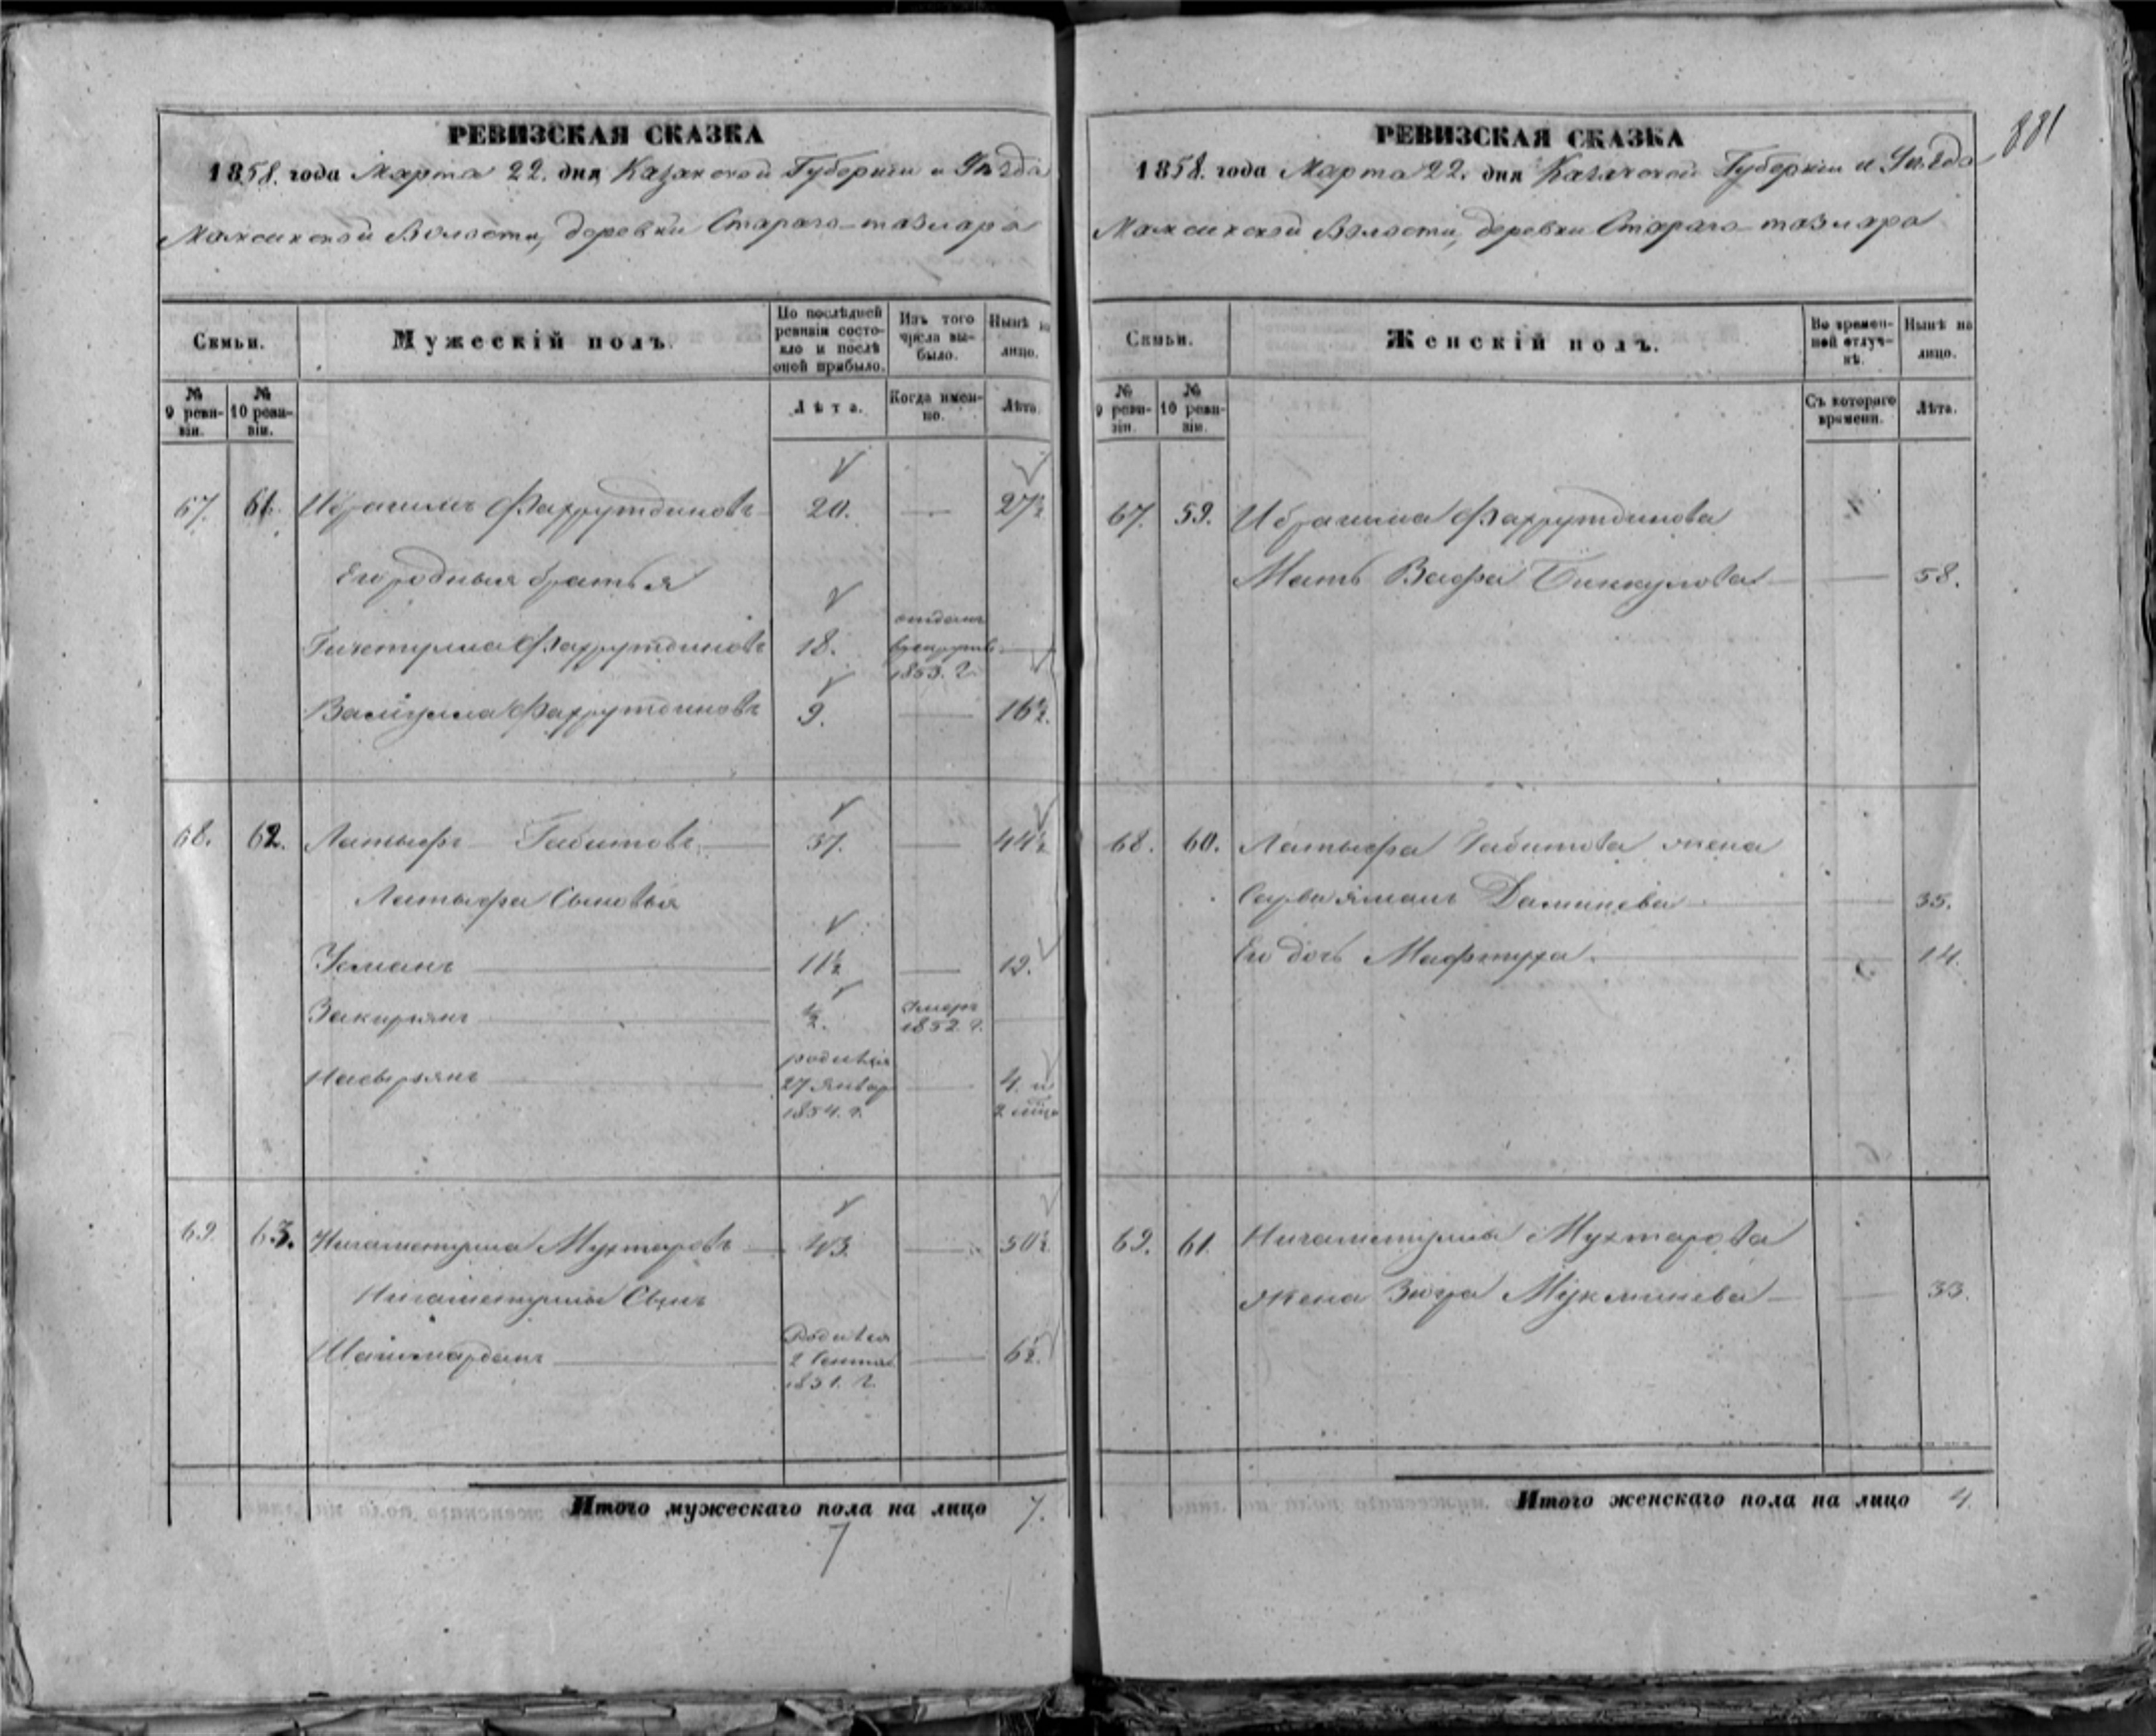 РЕВИЗСКАЯ СКАЗКА
1858. года Марта 22. дня Казанской Губернии и Уѣзда
Волости, деревни Стараго-тазлара
Семьи.
Мужескій полъ.
По послѣдней ревизіи состояло и послѣ оной прибыло.
Изъ того числа выбыло.
Нынѣ на лицо.
№ 9 ревизіи.
№ 10 ревизіи.
Лѣта.
Когда именно.
Лѣта.
67. 61. Ибрагимъ Фахрутдиновъ 20. — 27½
Его родныя братья
Фахрутдиновъ 18. отданъ в рекруты 1853. г. —
Валиулла Фахрутдиновъ 9. — 16½.
68. 62. Латыфъ Габитовъ 37. — 44½
Латыфа Сыновья
Усманъ 11½ — 19.
Закирзянъ ½. Умеръ 1852. г.
Насырзянъ родился 27 Январ 1854. г. — 4. и 2 мѣца
69. 63. Нигаметулла Мухтаровъ 43. — 50½
Нигаметуллы Сынъ
Шагимарданъ Родился 2 Сентяб 1851. г. — 6½.
Итого мужескаго пола на лицо 7.
7
РЕВИЗСКАЯ СКАЗКА
881
1858. года Марта 22. дня Казанской Губернии и Уѣзда
Волости, деревни Стараго-тазлара
Семьи.
Женскій полъ.
Во временной отлучкѣ.
Нынѣ на лицо.
№ 9 ревизіи.
№ 10 ревизіи.
Съ котораго времени.
Лѣта.
67. 59. Ибрагима Фахрутдинова
Мать Вафа Биккулова — 58.
68. 60. Латыфа Габитова жена
— 35.
Его дочь Мафтуха — 14.
69. 61. Нигаметуллы Мухтарова
жена Зюгра Мукминева — 33.
Итого женскаго пола на лицо 4.